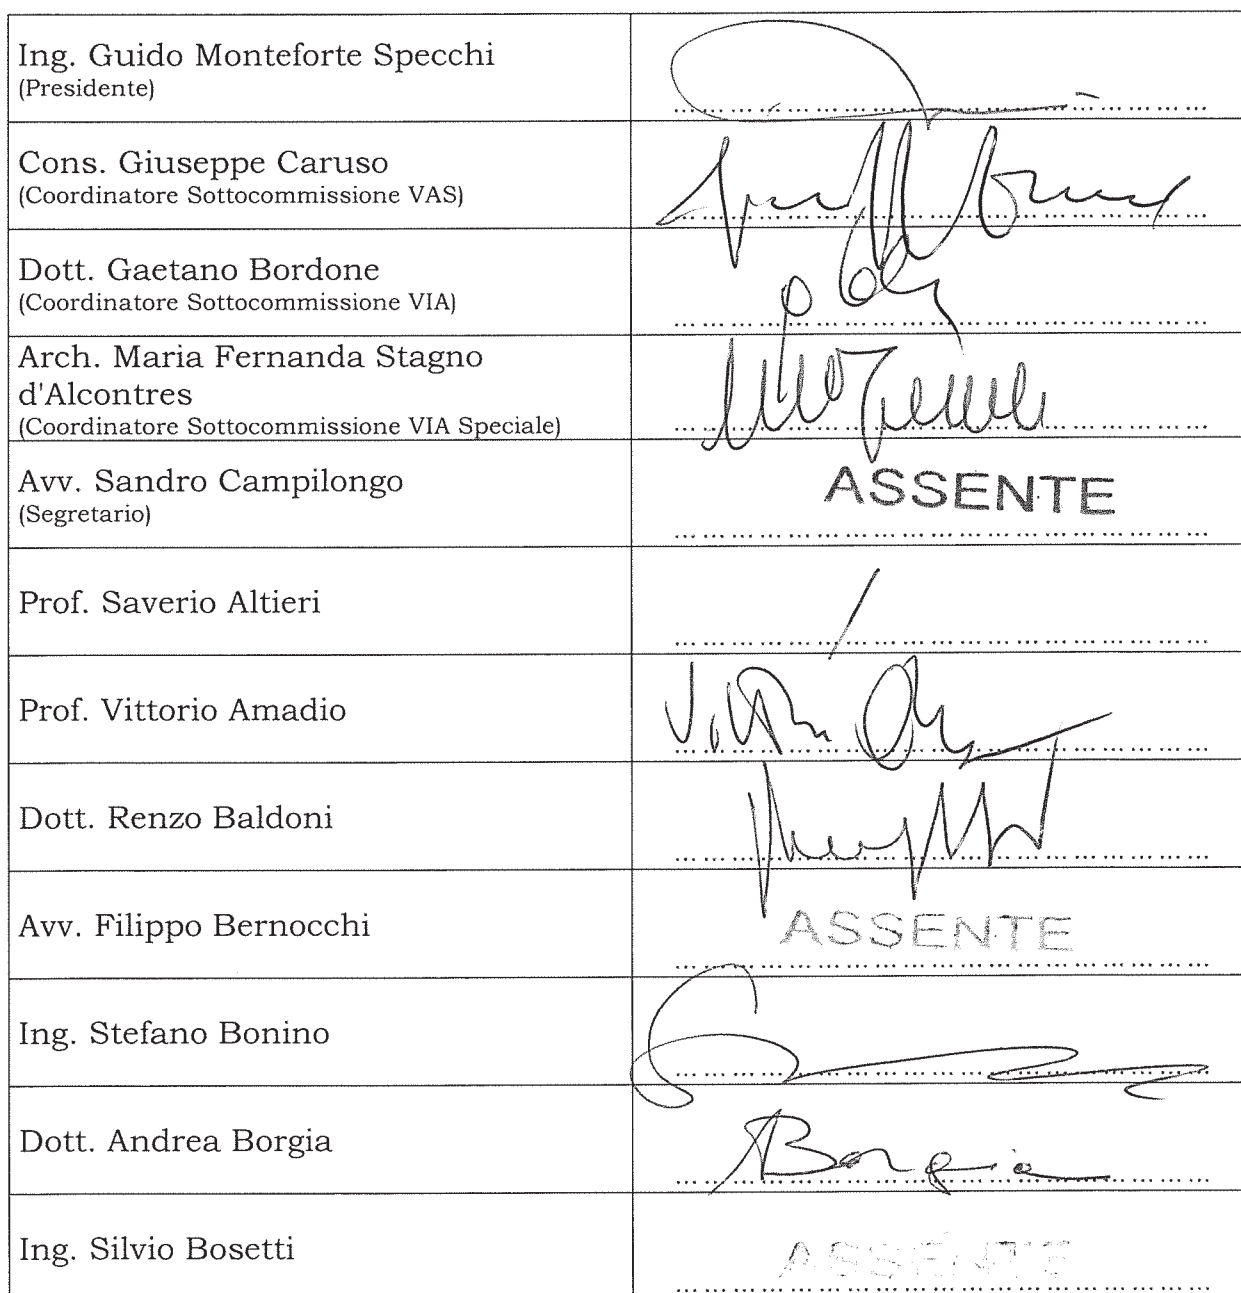 Ing. Guido Monteforte Specchi
(Presidente)
Cons. Giuseppe Caruso
(Coordinatore Sottocommissione VAS)
Dott. Gaetano Bordone
(Coordinatore Sottocommissione VIA)
Arch. Maria Fernanda Stagno
d'Alcontres
(Coordinatore Sottocommissione VIA Speciale)
Avv. Sandro Campilongo
(Segretario)
ASSENTE
Prof. Saverio Altieri
Prof. Vittorio Amadio
Dott. Renzo Baldoni
Avv. Filippo Bernocchi
ASSENTE
Ing. Stefano Bonino
Dott. Andrea Borgia
ABorgia
Ing. Silvio Bosetti
ASSENTE